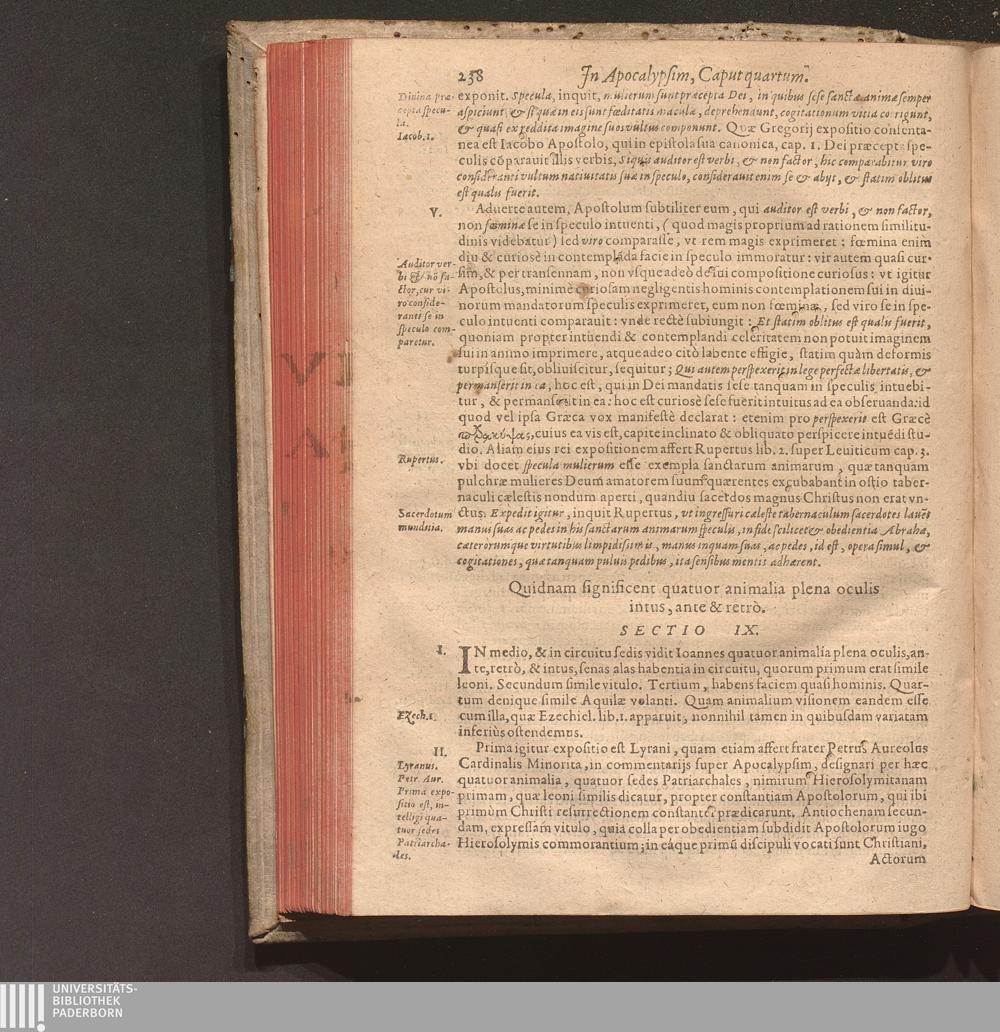 238 In Apocalypsim, Caput quartum.
Divina præ-
cepta specu-
la.
Iacob. 1.
exponit. Specula, inquit, mulierum sunt præcepta Dei, in quibus sese sanctæ animæ semper
aspiciunt, & si quæ in eis sunt fœditatis maculæ, deprehendunt, cogitationum vitia corrigunt,
& quasi ex reddita imagine suos vultus componunt. Quæ Gregorij expositio consenta-
nea est Iacobo Apostolo, qui in epistola sua canonica, cap. 1. Dei præcepta spe-
culis cōparauit illis verbis, Siquis auditor est verbi, & non factor, hic comparabitur viro
consideranti vultum natiuitatis suæ in speculo, considerauit enim se & abijt, & statim oblitus
est qualis fuerit.
V.
Aduerte autem, Apostolum subtiliter eum, qui auditor est verbi, & non factor,
non fœminæ se in speculo intuenti, (quod magis proprium ad rationem similitu-
dinis videbatur) sed viro comparasse, vt rem magis exprimeret: fœmina enim
diu & curiosè in contemplāda facie in speculo immoratur: vir autem quasi cur-
Auditor ver-
bi & nō fa-
ctor, cur vi-
ro conside-
ranti se in
speculo com-
paretur.
sim, & per transennam, non vsque adeò de sui compositione curiosus: vt igitur
Apostolus, minimè curiosam negligentis hominis contemplationem sui in diui-
norum mandatorum speculis exprimeret, eum non fœminæ, sed viro se in spe-
culo intuenti comparauit: vnde rectè subiungit: Et statim oblitus est qualis fuerit,
quoniam propter intuendi & contemplandi celeritatem non potuit imaginem
sui in animo imprimere, atque adeo citò labente effigie, statim quàm deformis
turpisque sit, obliuiscitur, sequitur; Qui autem perspexerit in lege perfectæ libertatis, &
permanserit in ea, hoc est, qui in Dei mandatis sese tanquam in speculis intuebi-
tur, & permanserit in ea: hoc est curiosè sese fuerit intuitus ad ea obseruanda: id
quod vel ipsa Græca vox manifestè declarat: etenim pro perspexerit est Græcè
παρακύψας, cuius ea vis est, capite inclinato & obliquato perspicere intuēdi stu-
dio. Aliam eius rei expositionem affert Rupertus lib. 2. super Leuiticum cap. 3.
Rupertus.
vbi docet specula mulierum esse exempla sanctarum animarum, quæ tanquam
pulchræ mulieres Deum amatorem suum quærentes excubabant in ostio taber-
naculi cælestis nondum aperti, quandiu sacerdos magnus Christus non erat vn-
Sacerdotum
munditia.
ctus: Expedit igitur, inquit Rupertus, vt ingressuri cæleste tabernaculum sacerdotes lauēt
manus suas ac pedes in his sanctarum animarum speculis, in fide scilicet & obedientia Abrahæ,
cæterorumque virtutibus limpidissimis, manus inquam suas, ac pedes, id est, opera simul, &
cogitationes, quæ tanquam puluis pedibus, ita sensibus mentis adhærent.
Quidnam significent quatuor animalia plena oculis
intus, ante & retrò.
SECTIO IX.
I.
IN medio, & in circuitu sedis vidit Ioannes quatuor animalia plena oculis, an-
te, retrò, & intus, senas alas habentia in circuitu, quorum primum erat simile
leoni. Secundum simile vitulo. Tertium, habens faciem quasi hominis. Quar-
tum denique simile Aquilæ volanti. Quam animalium visionem eandem esse
Ezech. 1.
cum illa, quæ Ezechiel. lib. 1. apparuit, nonnihil tamen in quibusdam variatam
inferiùs ostendemus.
II.
Prima igitur expositio est Lyrani, quam etiam affert frater Petrus Aureolus
Lyranus.
Petr. Aur.
Prima expo-
sitio est, in-
telligi qua-
tuor sedes
Patriarcha-
les.
Cardinalis Minorita, in commentarijs super Apocalypsim, designari per hæc
quatuor animalia, quatuor sedes Patriarchales, nimirum Hierosolymitanam
primam, quæ leoni similis dicatur, propter constantiam Apostolorum, qui ibi
primùm Christi resurrectionem constanter prædicarunt. Antiochenam secun-
dam, expressam vitulo, quia colla per obedientiam subdidit Apostolorum iugo
Hierosolymis commorantium; in eáque primū discipuli vocati sunt Christiani,
Actorum
UNIVERSITÄTS-
BIBLIOTHEK
PADERBORN